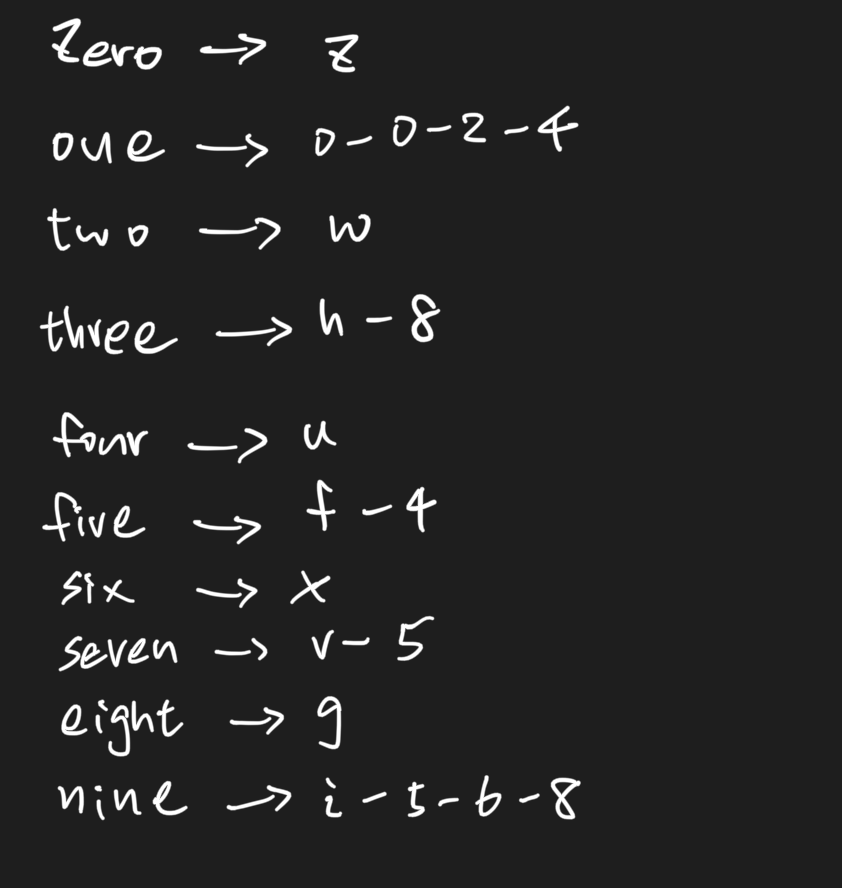 Zero → z
one → o - 0 - 2 - 4
two → w
three → h - 8
four → u
five → f - 4
six → x
seven → v - 5
eight → g
nine → i - 5 - 6 - 8